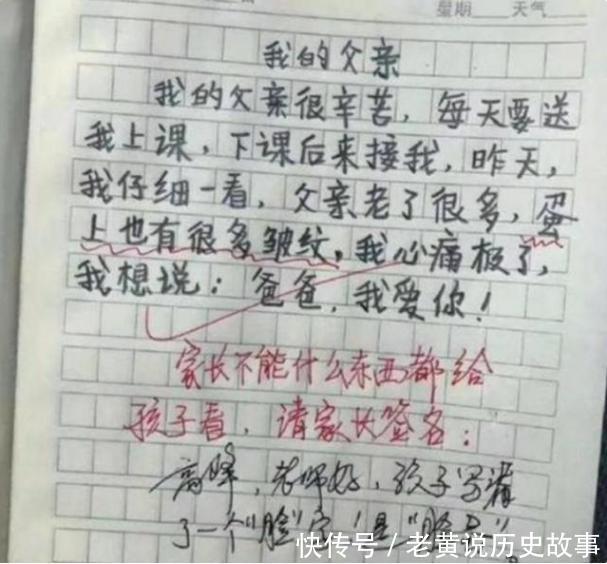 星期 天气
我的父亲
我的父亲很辛苦，每天要送
我上课，下课后来接我，昨天，
我仔细一看，父亲老了很多，蛋
上也有很多皱纹，我心痛极了，
我想说：爸爸，我爱你！
家长不能什么东西都给
孩子看，请家长签名：
高峰，老师好，孩子写错
了一个"脸"字！是"脸
快传号／老黄说历史故事